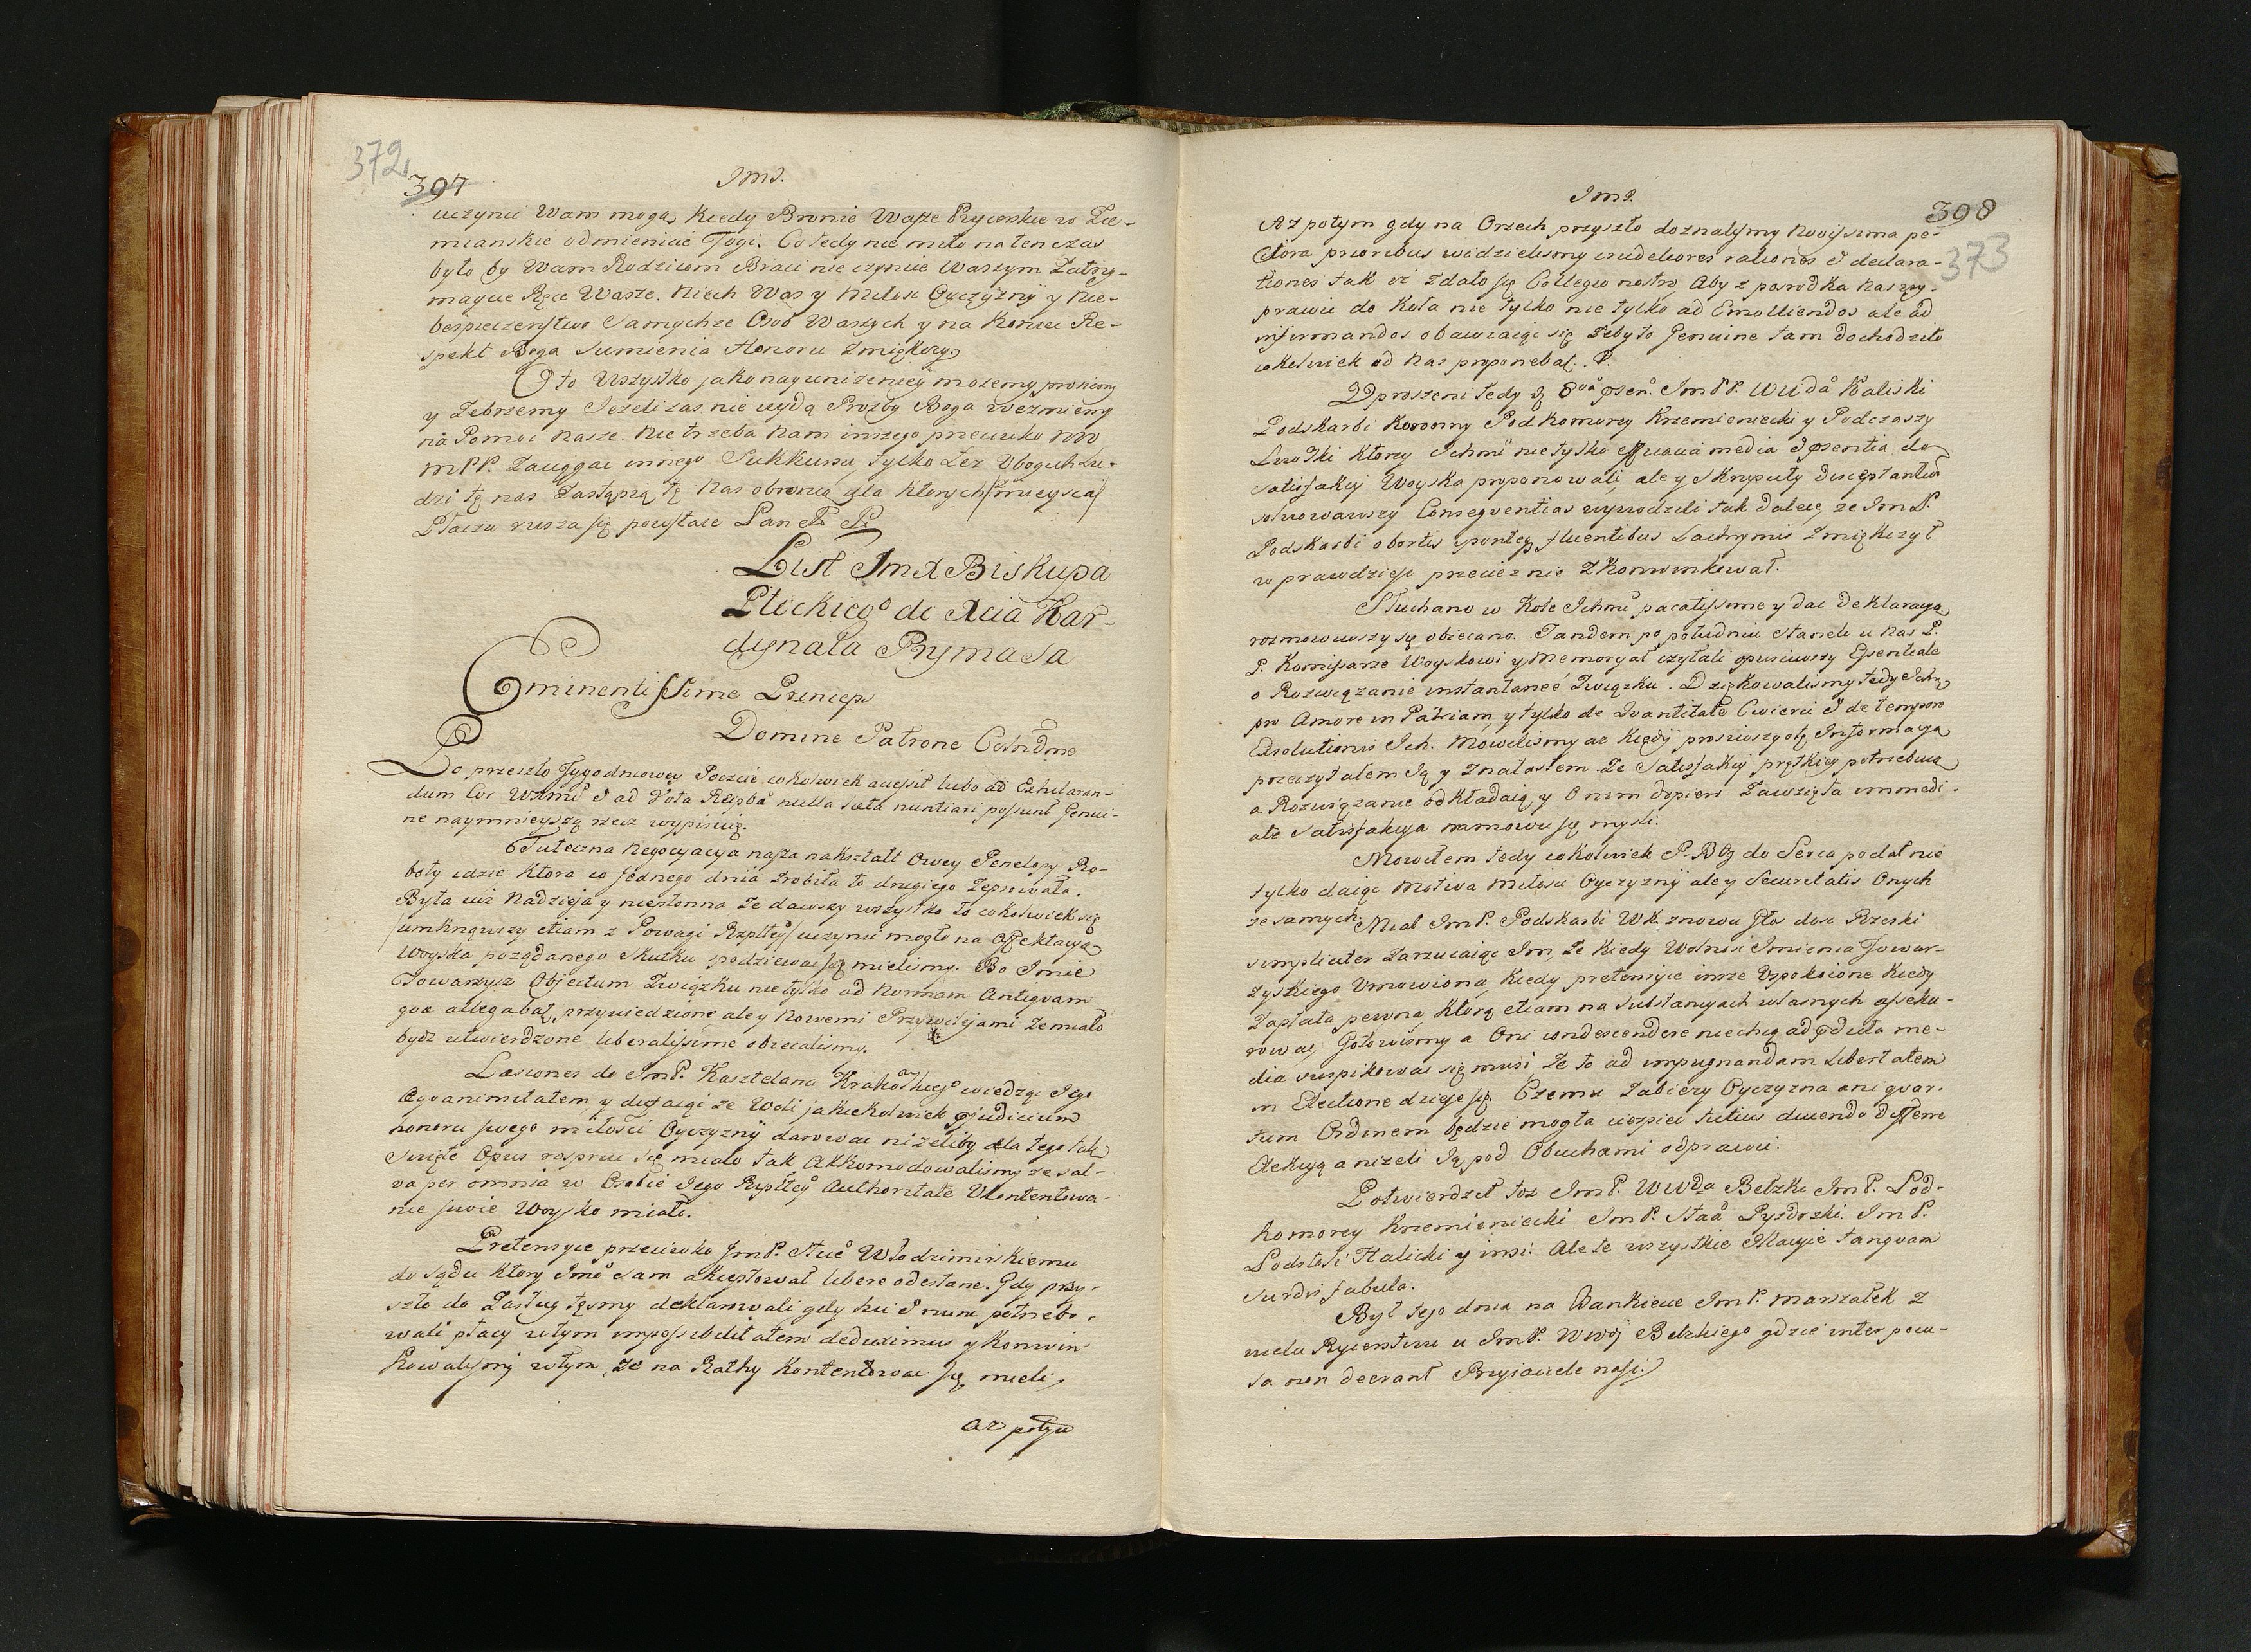 372
397
JmJ.
uczynić Wam mogą, Kiedy Bronie Wasze Rycerskie w Zie-
mianskie odmienicie Togi. Co tedy nie miło na ten czas
było by Wam Rodzicom Braci nie czyncie Waszym Zatrzy-
maycie Ręce Wasze. Niech Was y Miłość Oyczyzny y Nie-
bespieczenstwo Samychze Osob Waszych y na Koncu Re-
spekt Boga Sumienia Honoru Zmiękczy
O to Wszystko jako nayunizeniey mozemy prosiemy
y Zebrzemy Jezeli zas nie uydą Prozby Boga weźmiemy
na Pomoc Nasze. Nie trzeba Nam inszego przeciwko WW
MPP. Zaciągać innego Sukkursu, tylko Łez Vbogich Lu-
dzi tę nas Zastąpią tę Nas obronią dla Ktorych /:mieysca:/
Płaczu rusza się powstaie Pan &c &c
List Jmx Biskupa
Płockieg° do Xcia Kar-
dynała Prymasa
Eminentissime Princeps
Domine Patrone Colndme
Po przeszło Tygodniowey Poczcie cokolwiek accessit lubo ad Exhilaran-
dum Cor WXMci & ad Vota Reipbcae nulla laeta nuntiari possunt Genui-
ne naymnieyszą rzecz wypisuię.
Tuteczna Negocyacya nasza nakształt Owey Penelopy Ro-
boty idzie Ktora co jednego dnia Zrobiła to drugiego Zepsowała.
Była iuż Nadzieja y niepłonna Ze dawszy wszystko to cokolwiek się
/umknąwszy etiam z Powagi Rzpltey/ uczynić mogło na Affektacyą
Woyska pożądanego Skutku spodziewać się mielismy. Bo Jmie
Towarzysz Objectum Związku nie tylko ad Normam Antiquam
qvae allegabat, przywiedzione ale y Nowemi Przywilejami Ze miało
bydz utwierdzone liberalissime obiecalismy.
Læsiones do JmP. Kasztelana Krakoskieg° wiedząc Jego
Aeqvanimitatem, y dufaiąc ze Woli jakiekolwiek pjudicium
honoru swego miłości Oyczyzny darować niżeliby dla tego tak
Swięte Opus rospruć się miało tak Akkomodowalismy ze sal-
va per omnia w Osobie Jego Rzpltey Authoritate Vkontentowa-
nie swoie Woysko miało.
Pretensye przeciwko JmP. Stuc Włodzimirskiemu
do sądu Ktory Jmc sam akceptował libere odesłane. Gdy przy-
szło do Zasług tęsmy deklarowali gdy hic & nunc potrzebo-
wali płacy w tym impossibilitatem deduximus y Konwin-
kowalismy w tym, Ze na Rathy Kontentować się mieli,
aż potym
JmJ.
398
373
Aż potym gdy na Orzech przyszło doznalismy Novissima pe-
ctora prioribus widzielismy crudeliores rationes & declara-
tiones tak iż Zdało się Collegio nostro, Aby z posrodka Naszy
prawie do Koła nie tylko nie tylko ad Emolliendos ale ad
informandos obawiaiąc się Zeby to Genuine tam dochodziło
cokolwiek od Nas proponebat. P.
Vproszeni tedy są 8va psen. JmPP. WUda Kaliski
Podskarbi Koronny Podkomorzy Krzemieniecki y Podczaszy
Lwoski Ktorzy Ichmć nie tylko efficacia media & psentia do
satisfakcyi Woyska proponowali, ale y Skrupuły disceptantiu
solwowawszy Conseqventias wywodzili tak dalece, ze JmP.
Podskarbi obortis sponteq fluentibus Lachrymis Zmiękczył
w prawdzie je przeciez nie Zkonwinkował.
Słuchano w Kole Ichmć pacatissime y dać Deklaracyą
rozmowiwszy się obiecano. Tandem po południu staneli u Nas P.
P. Komissarze Woyskowi y Memoryał czytali opusciwszy Essentiale
o Rozwiązanie instantanee Związku. Dziękowalismy tedy Ichm
pro Amore in Patriam, y tylko de Qvantitate Cwierci & de tempore
Exsolutionis Ich. Mowilismy aż Kiedy prosiwszy o tę Informacyą
przeczytałem Ją y Znalazłem Ze Satisfakcyi prętkiey potrzebuią
a Rozwiązanie odkładaią, y O nim dopiero Zawzięta immedi-
ate Satisfakcya namowić się mysli.
Mowiłem tedy cokolwiek P. Bog do Serca podał nie
tylko daiąc Motiva Miłości Oyczyzny ale y Securitatis Onych
ze samych. Miał JmP. Podskarbi WK. znowu Głos dosc Rzeski
simpliciter Zarzucaiąc Im, Ze Kiedy Wolnosć Imienia Towar-
zyskiego Vmowiona, Kiedy pretensye insze Vspokoione Kiedy
Zapłata pewna, Ktorą etiam na Substancyach własnych asseku-
rować Gotowismy a Oni condescendere niechcą ad pdicta me-
dia suspikować się musi, Ze to ad impugnandam libertatem
in Electione dzieje się. Czemu Zabieży Oyczyzna oni qvar-
tum Ordinem będzie mogła uczpić tutius ducendo differre
Elekcyą aniżeli Ją pod Obuchami odprawić.
Potwierdził toz JmP. WWda Bełzki JmP. Pod-
komorzy Krzemieniecki JmP. Staa Pyzdrski. JmP.
Podstoli Halicki y insi. Ale te wszystkie Racye tanqvam
surdis fabula.
Był tego dnia na Bankiecie JmP. Marszałek z
wielu Rycerstwu u JmP. Wwdy Bełzkiego gdzie inter pocu-
la non deerant Przyiaciele nasi.